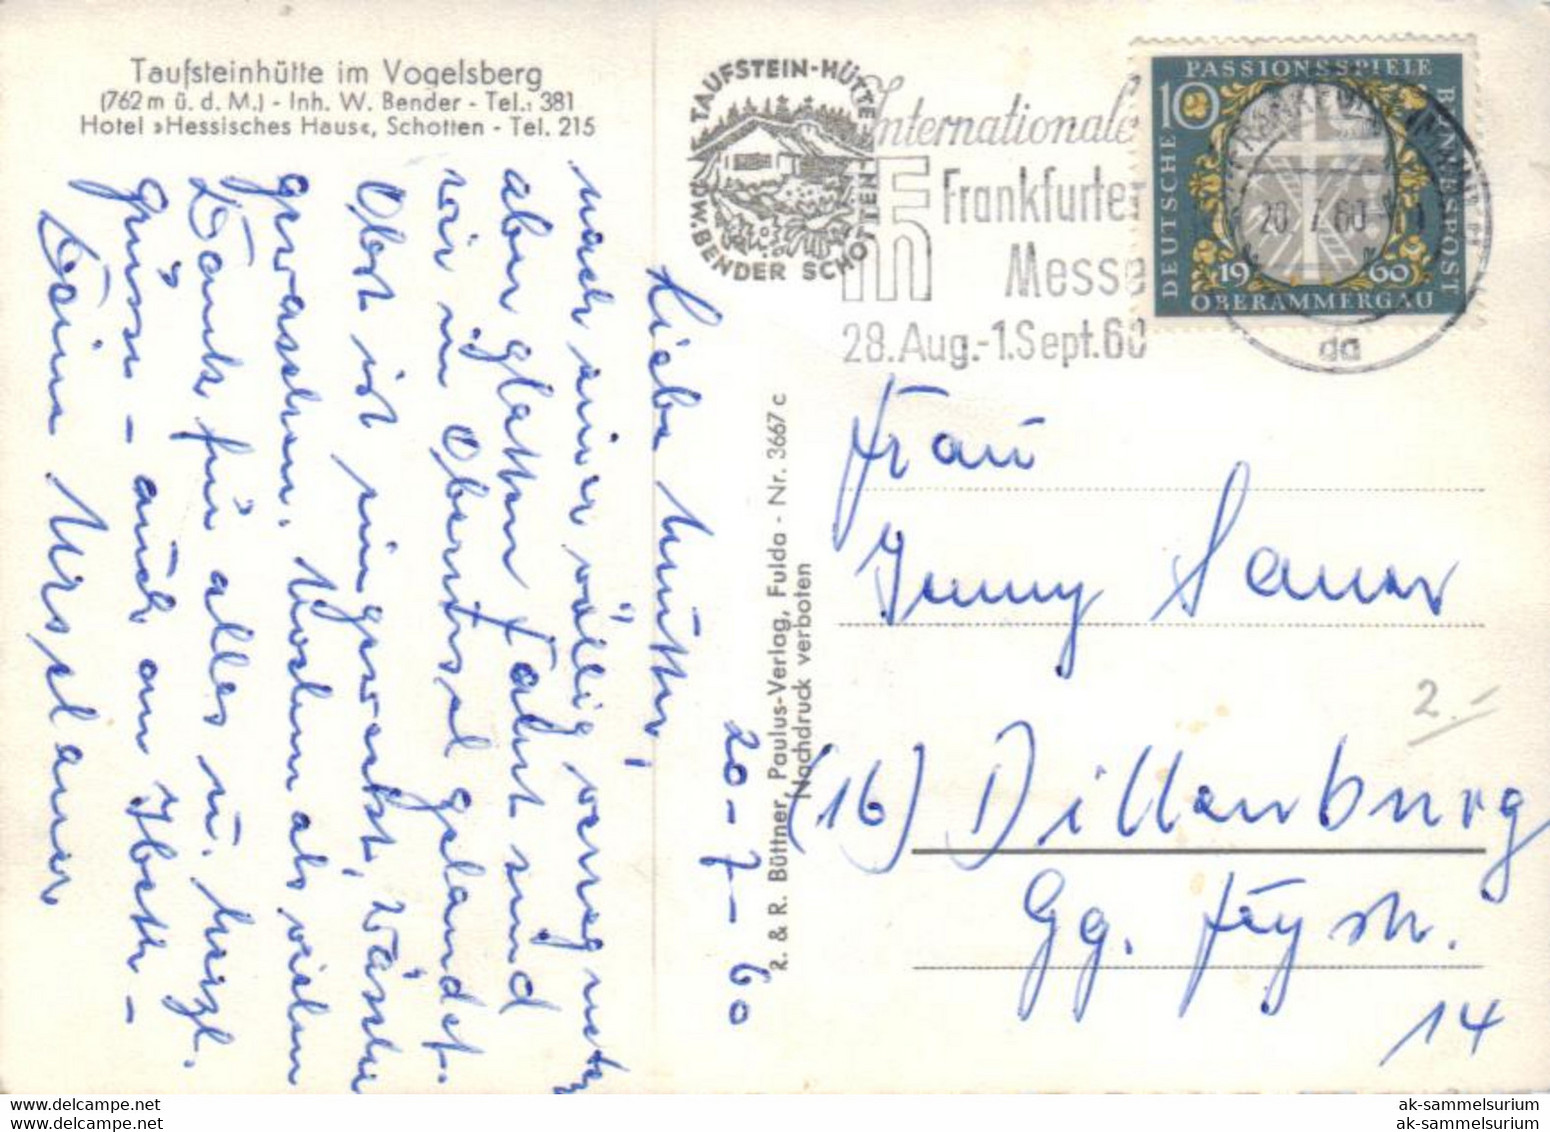 Taufsteinhütte im Vogelsberg
(762 m ü. d. M.) - Inh. W. Bender - Tel.: 381
Hotel »Hessisches Haus«, Schotten - Tel. 215
TAUFSTEIN-HÜTTE
W. BENDER SCHOTTEN
Internationale
Frankfurter
Messe
28.Aug.-1.Sept.60
PASSIONSSPIELE
10
DEUTSCHE
BUNDESPOST
1960
OBERAMMERGAU
FRANKFURT (MAIN)
20. 7. 60
da
R. & R. Büttner, Paulus-Verlag, Fulda - Nr. 3667 c
Nachdruck verboten
20-7-60
Liebe Mutter,
nach einer völlig verregneten
aber glatten Fahrt sind
wir in Oberursel gelandet.
Obst ist eingeweckt, Wäsche
gewaschen. Wollen als vielen
Dank für alles u. herzl.
Grüsse - auch an Ilseth -
Deine Urselaner
Frau
Jenny Sauer
(16) Dillenburg
Gg.
14
2.-
ak-sammelsurium
ak-sammelsurium
www.delcampe.net
www.delcampe.net